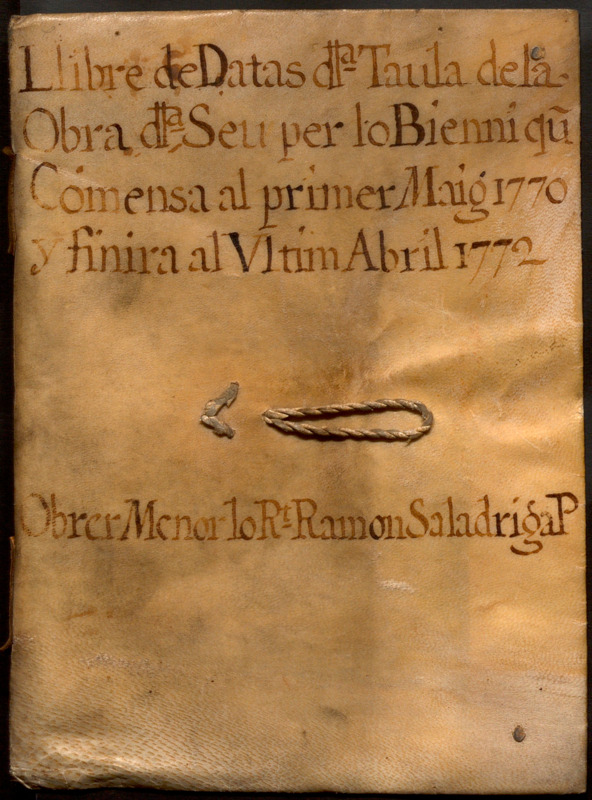 Llibre de Datas dlla Taula dela
Obra dlla Seu per lo Bienni qũ
Comensa al primer Maig 1770
y finira al Vltim Abril 1772
Obrer Menor lo Rt Ramon Saladriga P